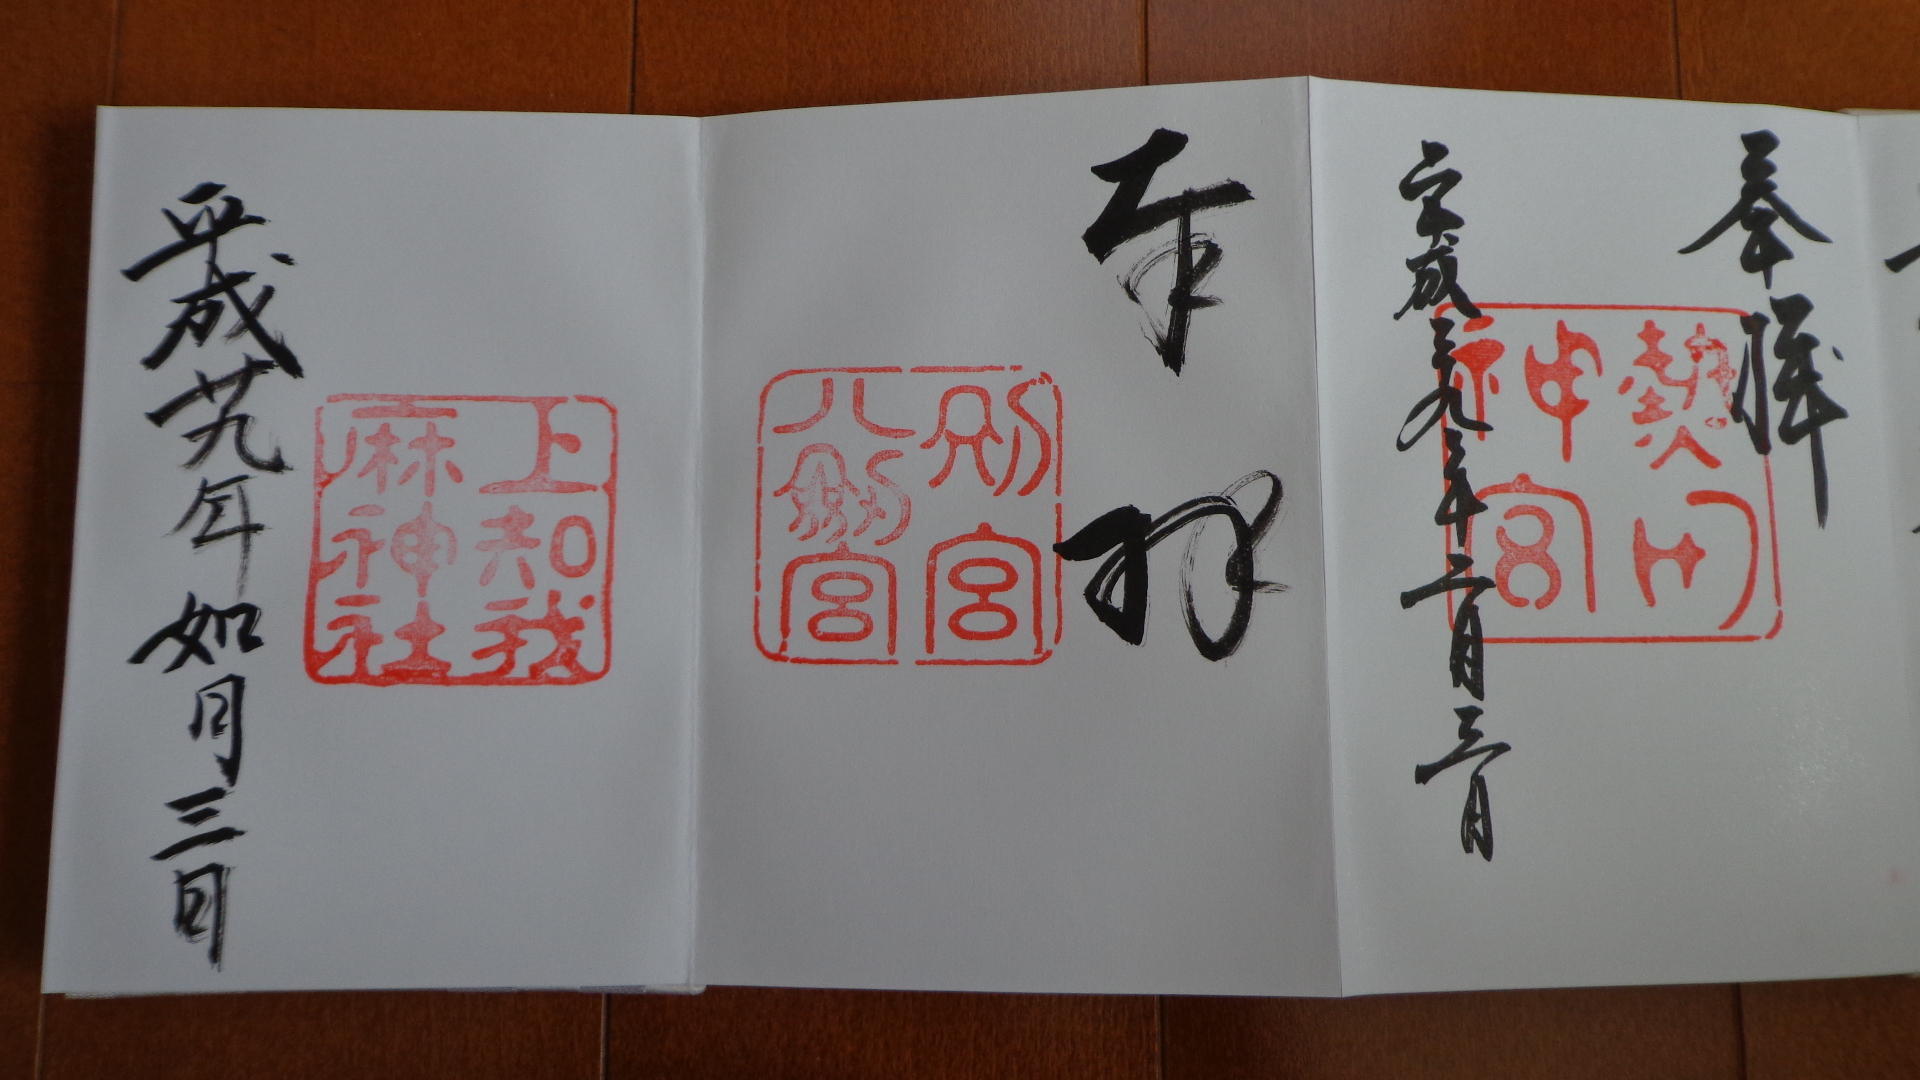 奉拝
熱田
神宮
平成二十九年二月三日
奉拝
別宮
八剣宮
上知我
麻神社
平成廿九年如月三日